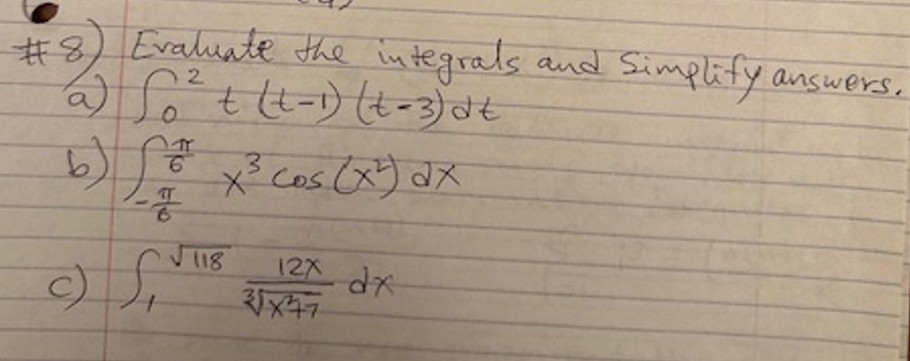 #8) Evaluate the integrals and Simplify answers.
a) ∫₀² t (t-1) (t-3) dt
b) ∫_{-π/6}^{π/6} x³ cos (x²) dx
c) ∫₁^{√118} 12x / ∛(x²+7) dx